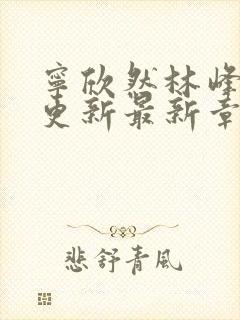 寧欣然林峰
更新最新章
悲舒青風